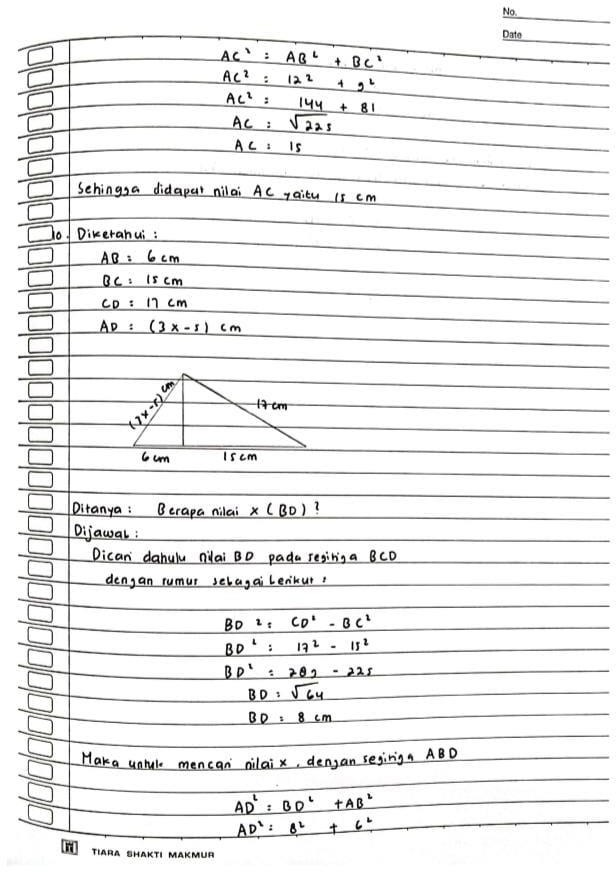 No.
Date
AC² = AB² + BC²
AC² = 12² + 9²
AC² = 144 + 81
AC = √225
AC = 15
Sehingga didapat nilai AC yaitu 15 cm
10. Diketahui :
AB = 6 cm
BC = 15 cm
CD = 17 cm
AD = (3x-5) cm
(3x-5) cm
17 cm
6 cm 15 cm
Ditanya : Berapa nilai x (BD) ?
Dijawab :
Dicari dahulu nilai BD pada segitiga BCD
dengan rumus sebagai berikut :
BD² = CD² - BC²
BD² = 17² - 15²
BD² = 289 - 225
BD = √64
BD = 8 cm
Maka untuk mencari nilai x, dengan segitiga ABD
AD² = BD² + AB²
AD² = 8² + 6²
TIARA SHAKTI MAKMUR